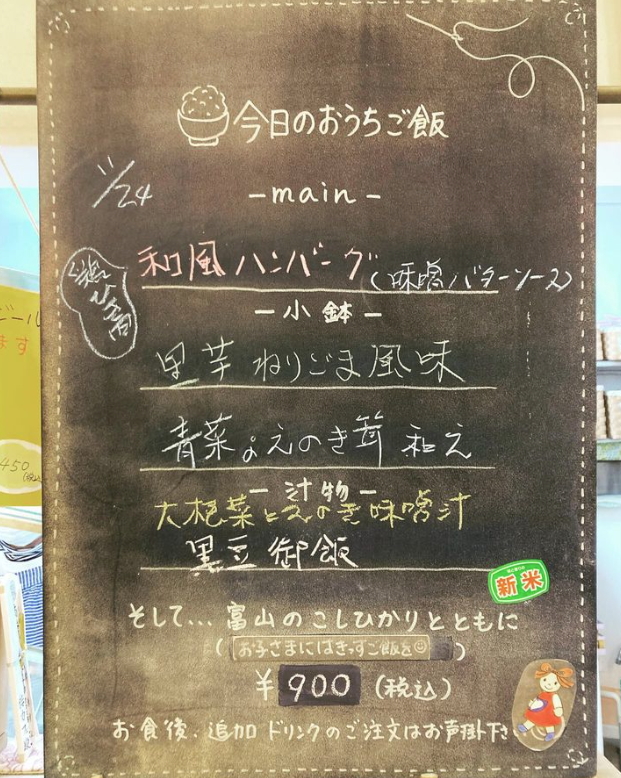 今日のおうちご飯
11/24
-main-
和風ハンバーグ(味噌バターソース)
-小鉢-
里芋ねりごま風味
青菜とえのき茸和え
-汁物-
大根菜とえのき味噌汁
黒豆御飯
新米
そして...富山のこしひかりとともに
(お子さまにはきっずご飯を☺)
¥900(税込)
お食後、追加ドリンクのご注文はお声掛下さい
450